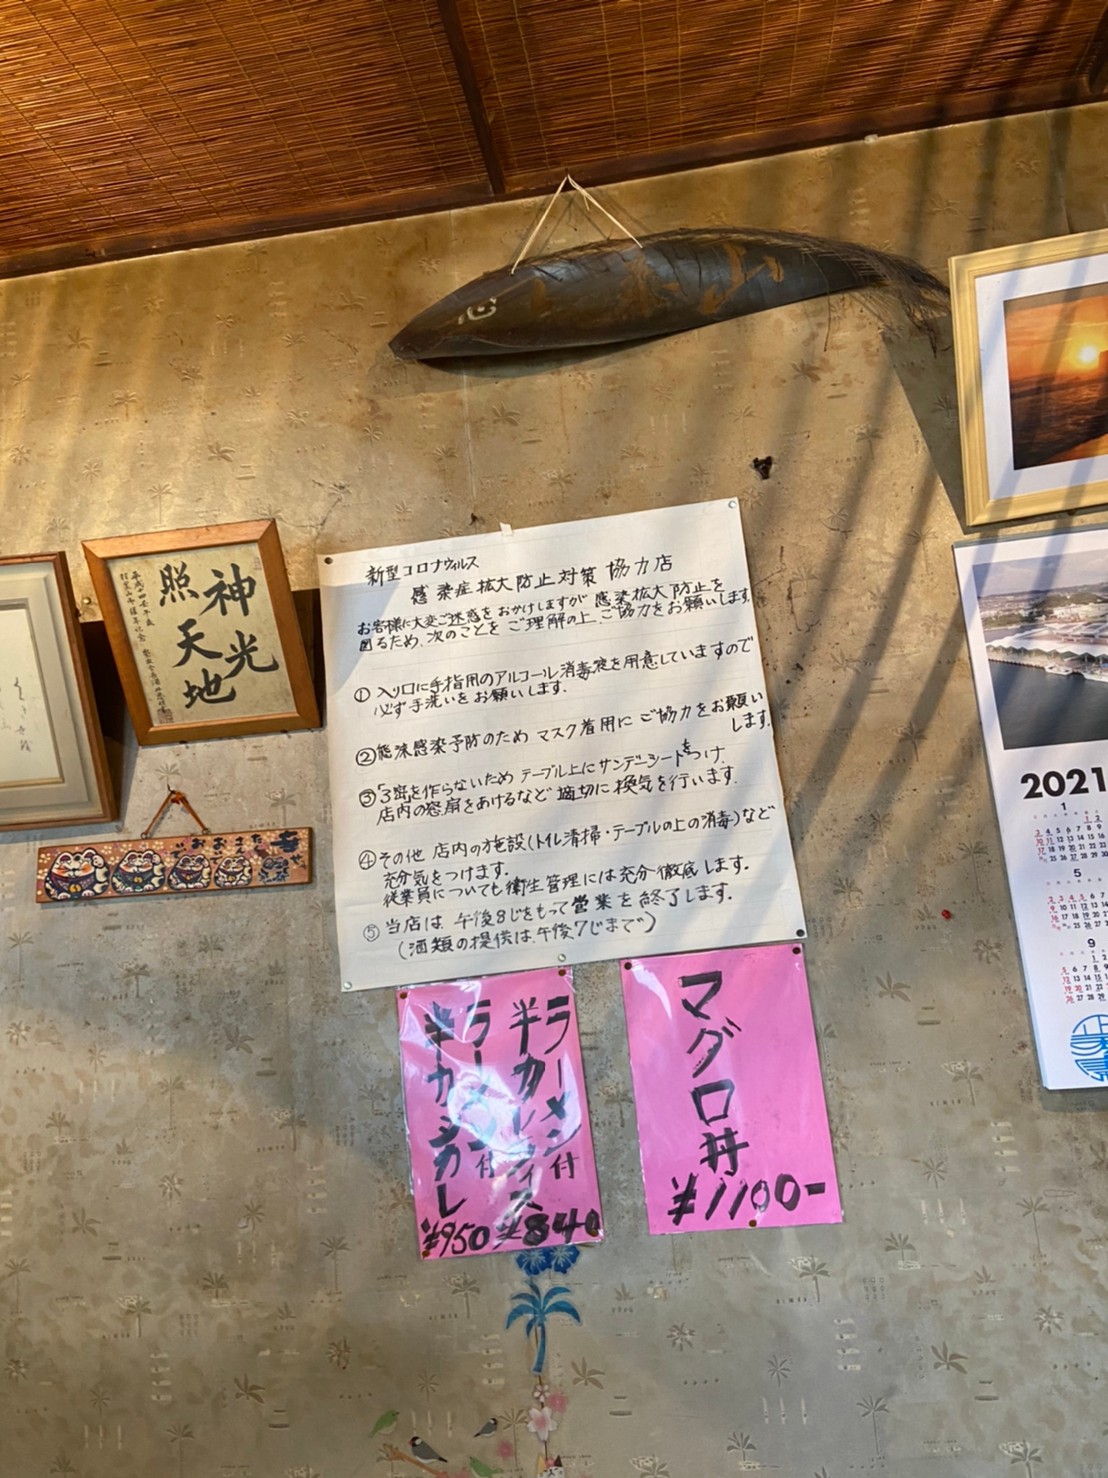 神光
照天地
新型コロナウィルス
感染症拡大防止対策協力店
お客様に大変ご迷惑をおかけしますが感染拡大防止を
図るため、次のことをご理解の上、ご協力をお願いします。
① 入り口に手指用のアルコール消毒液を用意していますので
必ず手洗いをお願いします。
②飛沫感染予防のため マスク着用に ご協力をお願い
します。
③「3密を作らないため テーブル上にサンデーシートをつけ
店内の窓扉をあけるなど 適切に換気を行います。
④その他 店内の施設(トイレ清掃・テーブルの上の消毒)など
充分気をつけます。
従業員についても衛生管理には充分徹底します。
⑤ 当店は、午後8じをもって営業を終了します。
(酒類の提供は午後7じまで)
ラーメン付
半カレーライス
¥840
ラーメン付
半カツカレー
¥950
マグロ丼
¥1100-
2021
1
5
9